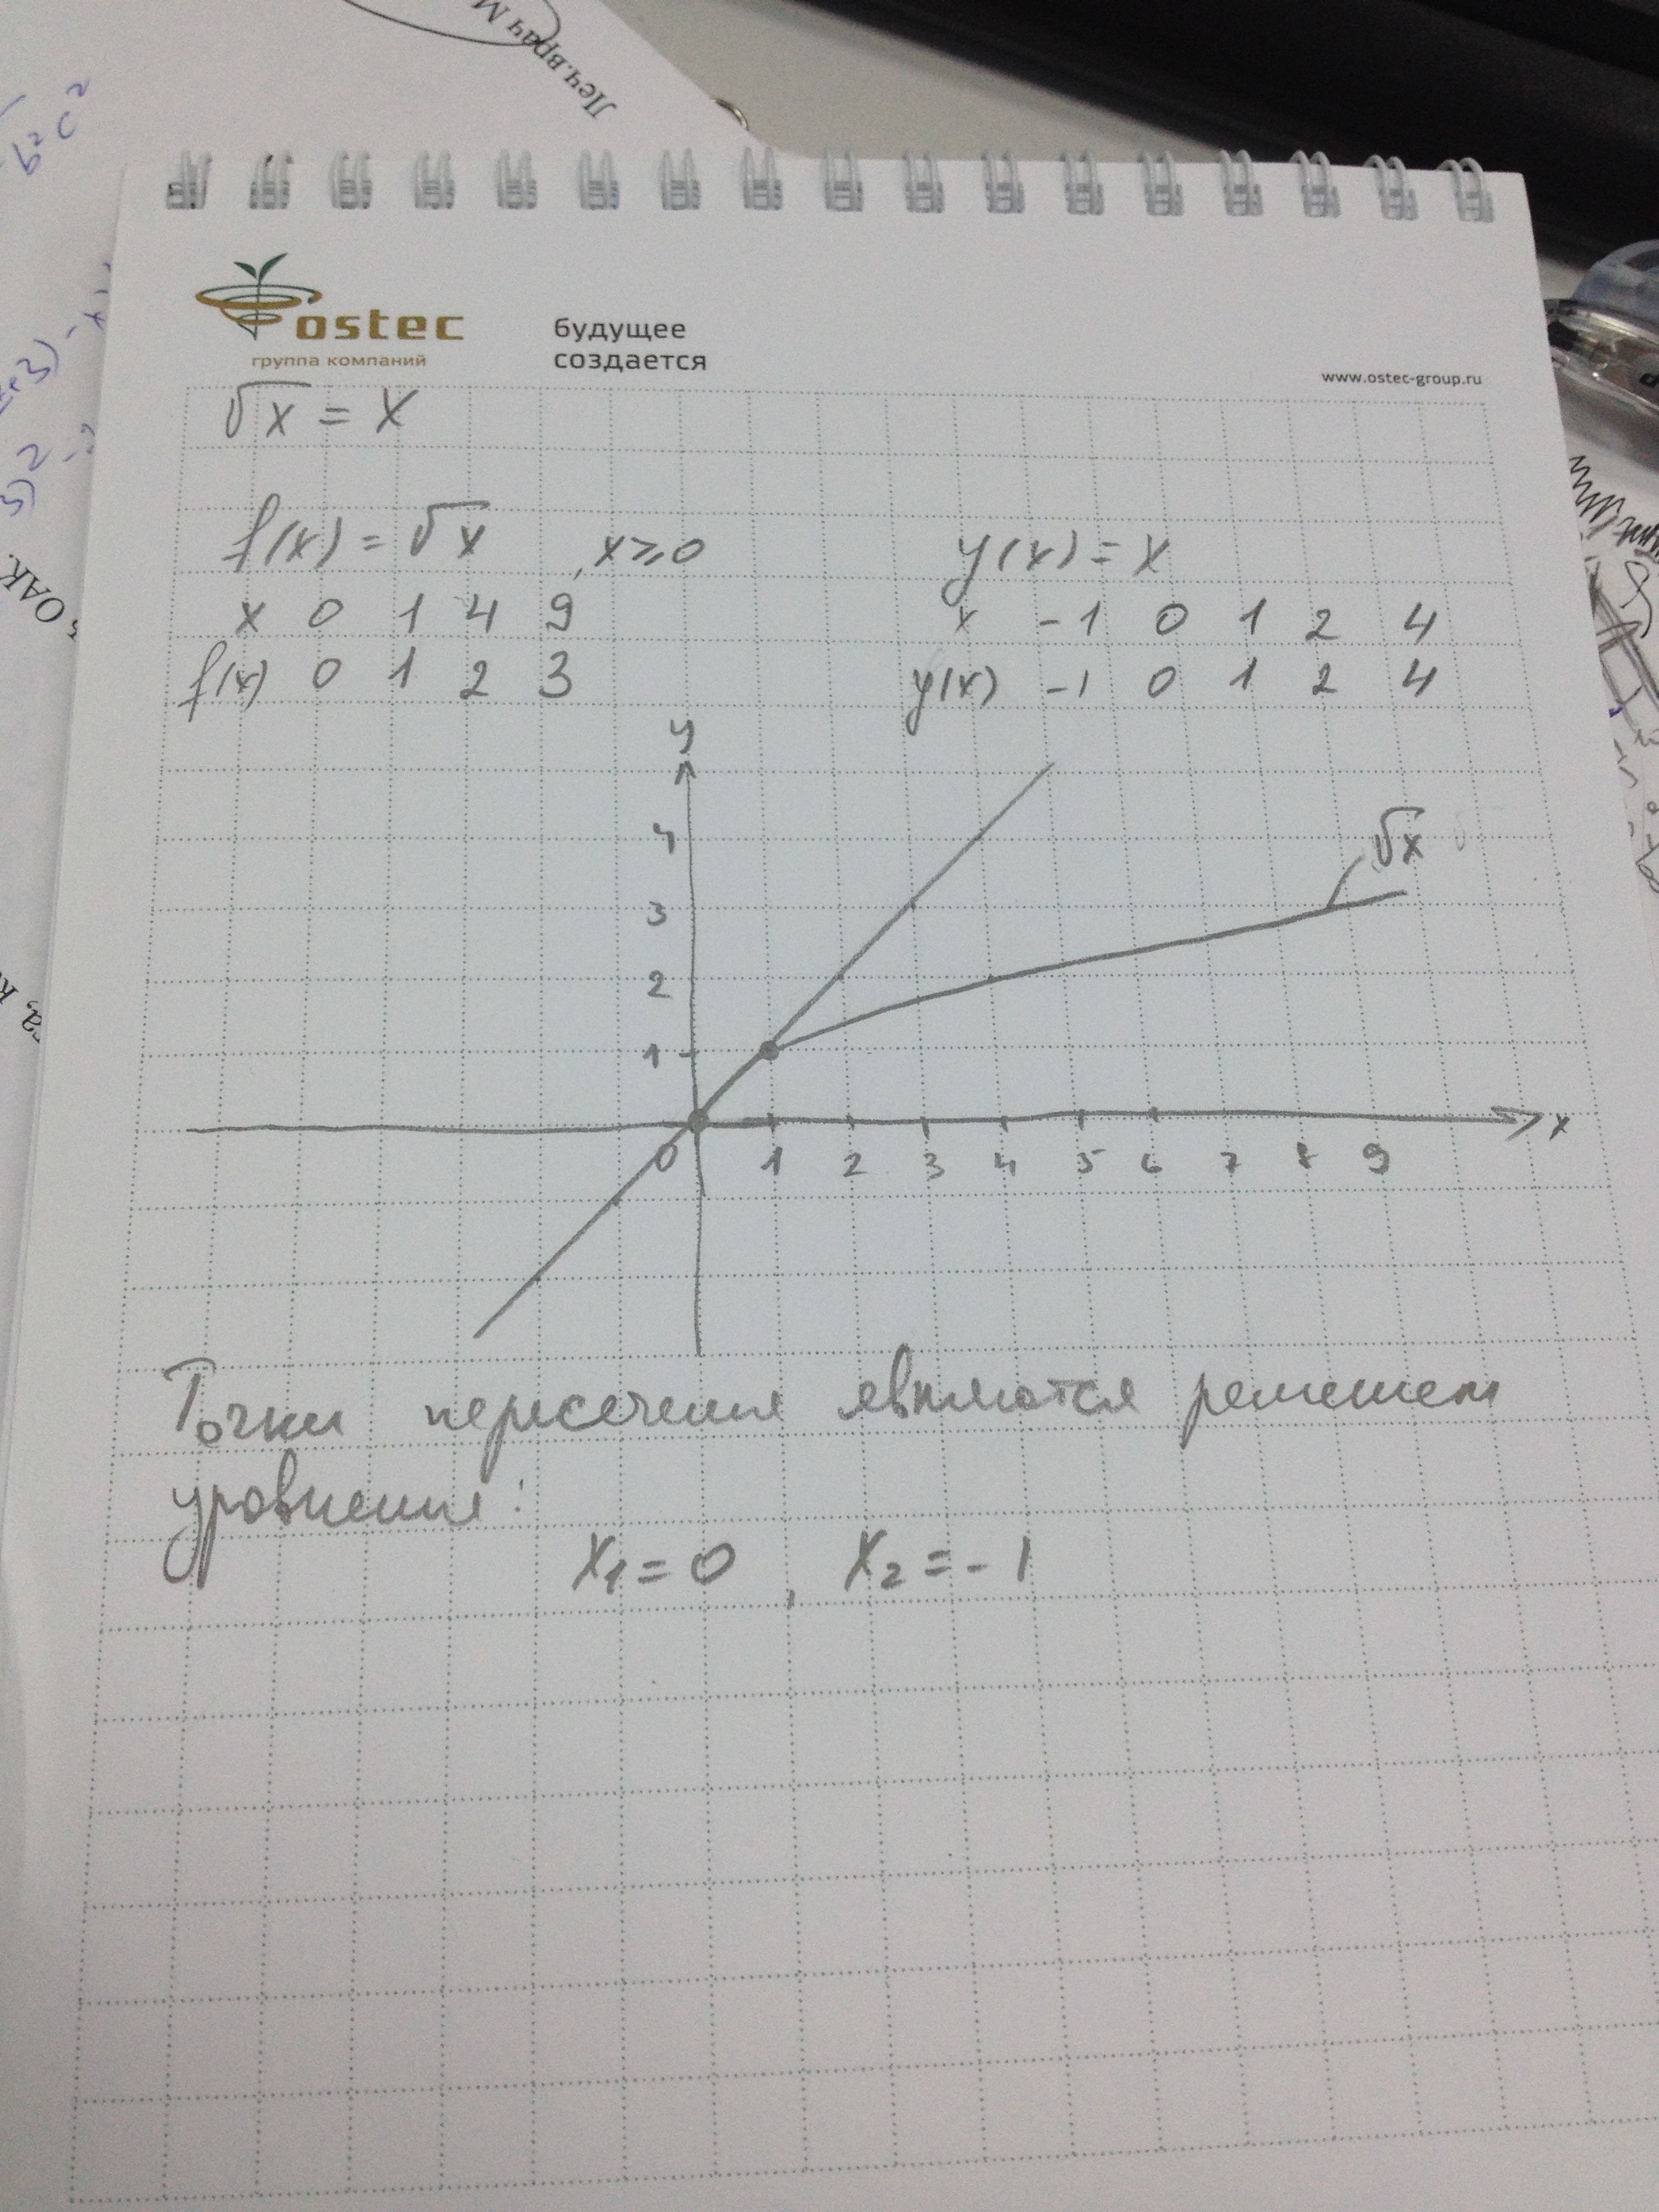 Леч.врач М
b²c²
ОАК.
ostec
группа компаний
будущее
создается
www.ostec-group.ru
√x = x
f(x) = √x , x ⩾ 0
x 0 1 4 9
f(x) 0 1 2 3
y(x) = x
x -1 0 1 2 4
y(x) -1 0 1 2 4
y
4
3
2
1
√x
0 1 2 3 4 5 6 7 8 9 x
Точки пересечения являются решением
уровнения:
x₁ = 0 , x₂ = -1